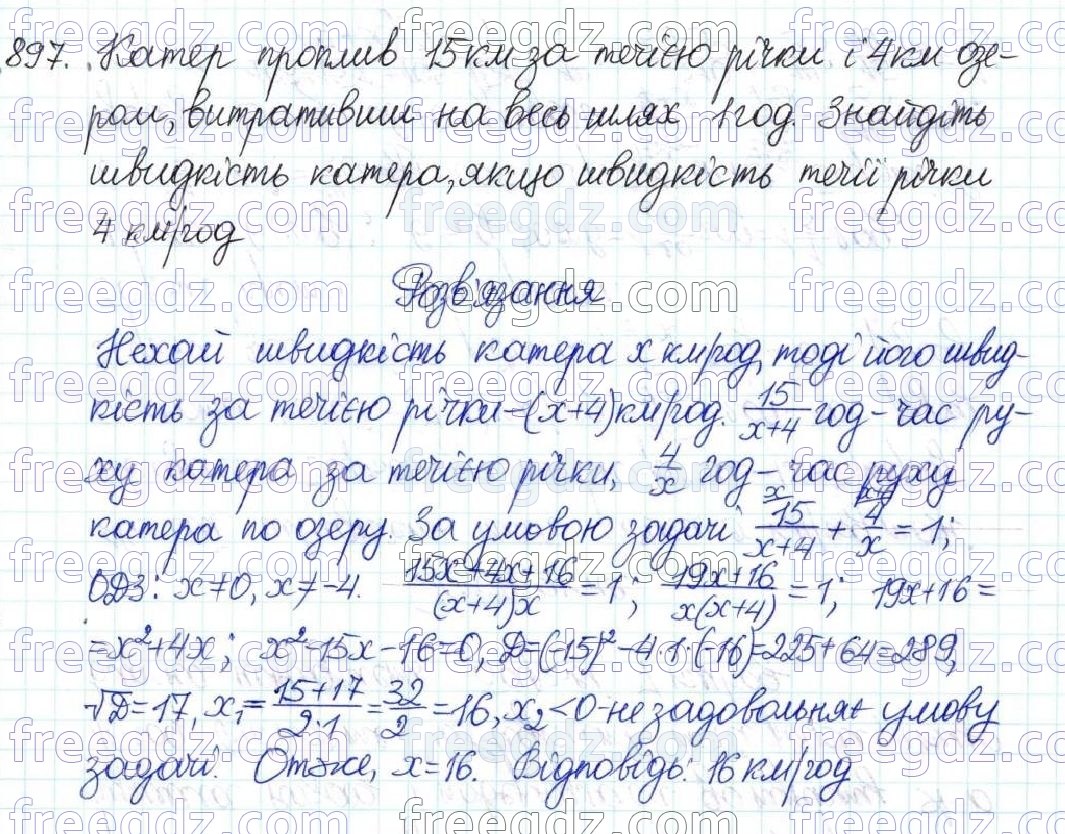 897. Катер проплив 15 км за течією річки і 4 км озе-
ром, витративши на весь шлях 1 год. Знайдіть
швидкість катера, якщо швидкість течії річки
4 км/год
Розв'язання
Нехай швидкість катера x км/год, тоді його швид-
кість за течією річки – (x+4) км/год. 15/(x+4) год – час ру-
ху катера за течією річки, 4/x год – час руху
катера по озеру. За умовою задачі 15/(x+4) + 4/x = 1;
ОДЗ: x≠0, x≠-4. (15x+4x+16)/((x+4)x) = 1; (19x+16)/(x(x+4)) = 1; 19x+16=
=x²+4x; x²-15x-16=0, D=(-15)²-4·1·(-16)=225+64=289,
√D=17, x₁=(15+17)/(2·1)=32/2=16, x₂<0 – не задовольняє умову
задачі. Отже, x=16. Відповідь: 16 км/год
freegdz.com